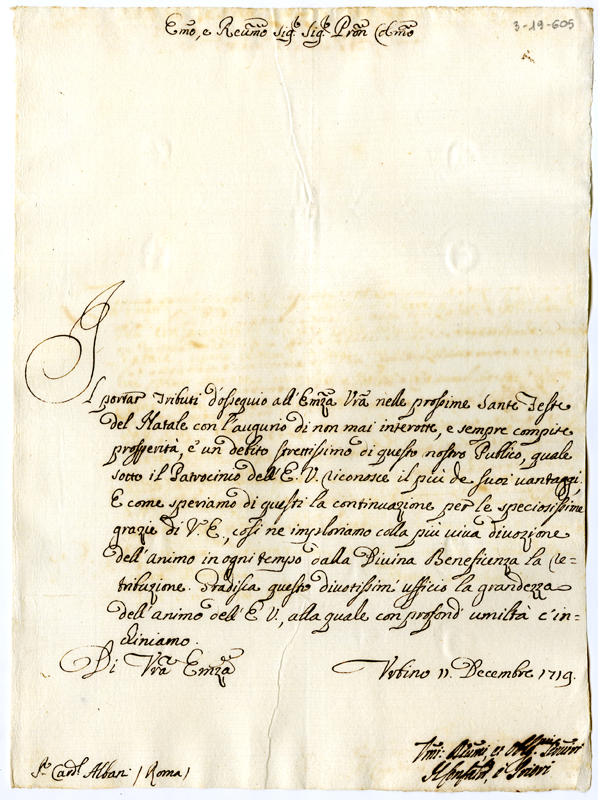 3-19-605
Emo, e Reumo Sig.e Sig.e Pron Colmo
Il portar Tributi d'ossequio all'Emza Vra nelle prossime Sante Feste
del Natale con l'augurio di non mai interotte, e sempre compite
prosperità, è un debito strettissimo di questo nostro Publico, quale
sotto il Patrocinio dell'E. V. riconosce il più de suoi vantaggi,
E come speriamo di questi la continuazione per le speciosissime
grazie di V. E., così ne imploriamo colla più viva divozione
dell'animo in ogni tempo dalla Divina Beneficenza la re=
tribuzione. Gradisca questo divotissim' ufficio la grandezza
dell'animo dell'E V., alla quale con profond' umiltà c'in=
chiniamo.
Di Vra Emza
Urbino 11. Decembre 1719.
Card.l Albani / Roma /
Umi: et
e Priori